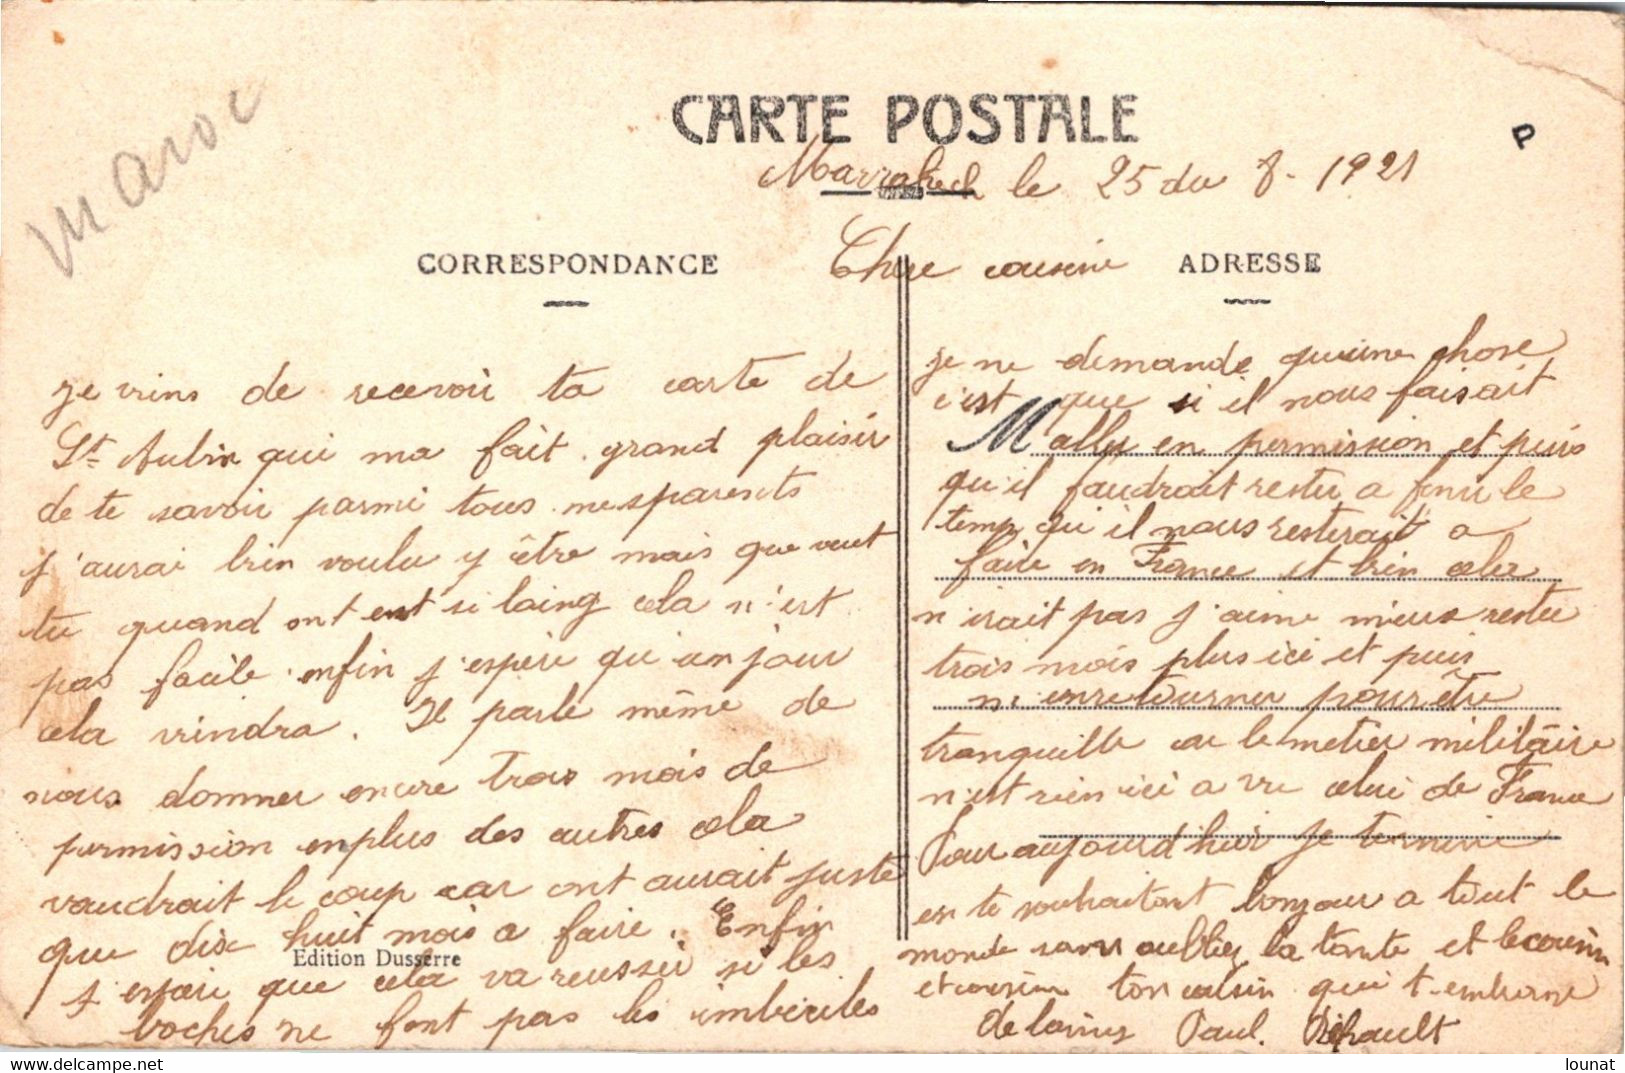 Maroc
CARTE POSTALE
P
Marrakech le 25 du 8. 1921
CORRESPONDANCE
ADRESSE
Chere cousine
je viens de recevoir ta carte de
St Aubin qui ma fait grand plaisir
de te savoir parmi tous mes parents
j'aurai bien voulu y être mais que veut
tu quand ont est si loing cela n'est
pas facile enfin j'espère qu'un jour
cela viendra. Il parle même de
nous donner encore trois mois de
permission en plus des autres cela
vaudrait le coup car ont aurait juste
que dix huit mois a faire. Enfin
Edition Dusserre
j'espère que cela va reussir si les
boches ne font pas les imbeciles
je ne demande qu'une chose
c'est que si il nous faisait
M aller en permission et puis
qu'il faudrait rester a finir le
temp qui il nous resterait a
faire en France et bien cela
n'irait pas j'aime mieux rester
trois mois plus ici et puis
m'enretourner pour être
tranquille car le metier militaire
n'est rien ici a vre celui de France
Pour aujourd'hui je termine
en te souhaitant bonjour a tout le
monde sans oublier la tante et le cousin
et cousine ton cousin qui t'embrasse
de loing Paul.